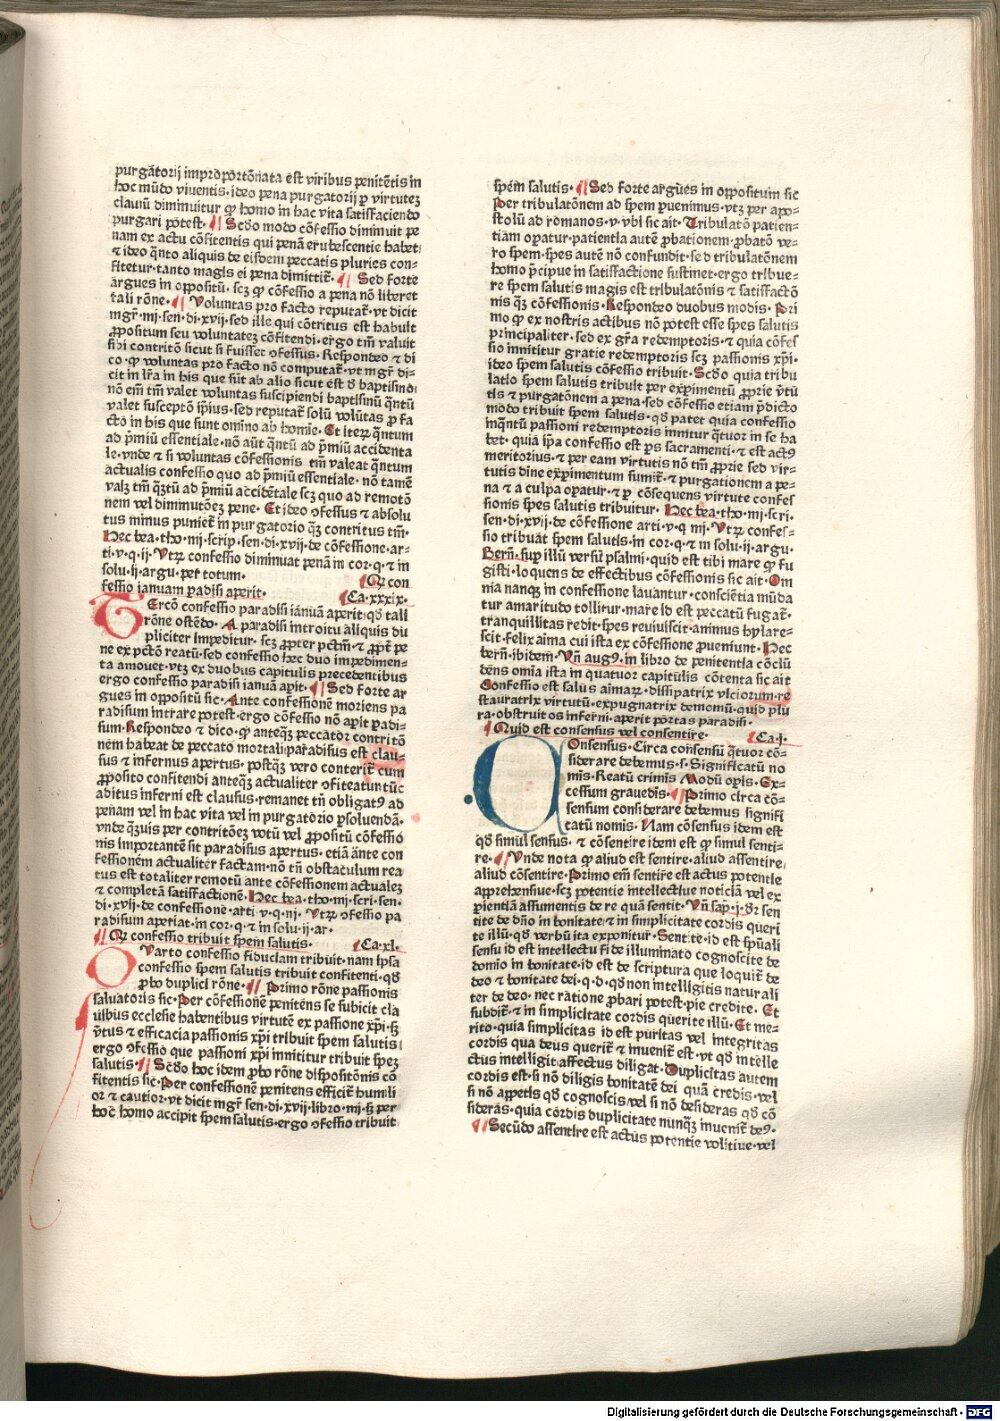 purgãtorij improportõnata est viribus penitẽtis in
hoc mũdo viuentis. ideo pena purgatorij ꝑ virtuteʒ
clauiũ diminuitur ꝙ homo in hac vita satisfaciendo
purgari potest. ¶ Scďo modo cõfessio diminuit pe
nam ex actu cõfitentis qui penã erubescentie habet
⁊ ideo q̃nto aliquis de eisdem peccatis pluries con-
fitetur. tanto magis ei pena dimittit᷑. ¶ Sed forte
argues in oppositũ. scʒ ꝙ cõfessio a pena nõ liberet
tali rõne. ¶ Voluntas pro facto reputat᷑. vt dicit
mgr̃. iiij. sen. di. xvij. sed ille qui cõtritus est habuit
ꝓpositum seu voluntateʒ cõfitendi. ergo tm̃ valuit
sibi contritõ sicut si fuisset ꝯfessus. Respondeo ⁊ di
co. ꝙ voluntas pro facto nõ computat᷑. vt mgr̃ di-
cit in lr̃a in his que sũt ab alio sicut est ď baptismo
nõ em̃ tm̃ valet voluntas suscipiendi baptismũ q̃ntũ
valet susceptõ ip̃ius. sed reputat᷑ solũ volũtas ꝓ fa
cto in his que sunt omĩno ab homie. Et iteꝝ q̃ntum
ad p̃miũ essentiale. nõ aũt q̃ntũ ad p̃miũ accidenta
le. vnde ⁊ si voluntas cõfessionis tm̃ valeat q̃ntum
actualis confessio quo ad p̃miũ essentiale. nõ tamẽ
valʒ tm̃ q̃ʒtũ ad p̃miũ accidẽtale scʒ quo ad remotõ
nem vel diminutõeʒ pene. Et ideo ꝯfessus ⁊ absolu
tus minus puniet᷑ in purgatorio qʒ contritus tm̃.
Hec bea. tho. iiij. scrip. sen. di. xvij. de cõfessione. ar-
ti. v. q. ij. Vtꝝ confessio diminuat penã in cor. q. ⁊ in
solu. ij. argu. per totum. ¶ Qꝛ con
fessio ianuam padisi aperit. ¶ Ca. xxxix.
TErcõ confessio paradisi ianuã aperit. qď tali
rõne ostẽdo. A paradisi introitu aliquis du
pliciter impeditur. scʒ ꝓpter pctm̃ ⁊ ꝓpt̃ pe
ne ex pctõ reatũ. sed confessio hec duo impedimen-
ta amouet. vtʒ ex duobus capitulis precedentibus
ergo confessio paradisi ianuã apit. ¶ Sed forte ar
gues in oppositũ sic. Ante confessionẽ moriens pa
radisum intrare potest. ergo cõfessio nõ apit ꝑadi-
sum. Respondeo ⁊ dico. ꝙ anteqʒ peccatoꝛ contritõ
nem habeat de peccato mortali paradisus est clau-
sus ⁊ infernus apertus. postqʒ vero conterit᷑ cum
ꝓposito confitendi anteqʒ actualiter ꝯfiteatur tũc
aditus inferni est clausus. remanet tñ obligatꝰ ad
penam vel in hac vita vel in purgatorio ꝑsoluendã.
vnde q̃ʒuis per contritõeʒ votũ vel ꝓpositũ cõfessio
nis importante sit paradisus apertus. etiã ãnte con
fessionẽm actualiter factam. nõ tñ obstaculum rea
tus est totaliter remotũ ante cõfessionem actualeʒ
⁊ completã satisfactionẽ. Hec bea. tho. iiij. scri. sen.
di. xvij. de confessione. arti. v. q. iij. Vtꝝ ꝯfessio pa
radisum aperiat. in cor. q. ⁊ in solu. ij. ar.
¶ Qꝛ confessio tribuit spem salutis. ¶ Ca. xl.
QVarto confessio fiduciam tribuit. nam ipsa
confessio spem salutis tribuit confitenti. qď
ꝓbo duplici rõne. ¶ Primo rõne passionis
saluatoris sic. Per cõfessionẽ penitens se subicit cla
uibus ecclesie habentibus virtutẽ ex passione xp̃i. ß
ṽtus ⁊ efficacia passionis xp̃i tribuit spem salutis
ergo ꝯfessio que passioni xp̃i innititur tribuit speʒ
salutis. ¶ Scďo hoc idem ꝓbo rõne dispositõnis cõ
fitentis sic. Per confessionẽ penitens efficit᷑ humili
or ⁊ cautior. vt dicit mgr̃ sen. di. xvij. libro. iiij. ß per
hoc homo accipit spem salutis. ergo ꝯfessio tribuit
spẽm salutis. ¶ Sed forte argũes in oppositum sic
Per tribulatõnem ad spem puenimus. vtʒ per apo-
stolũ ad romanos. v. vbi sic ait. Tribulatõ patien-
tiam opatur. patientia autẽ ꝓbationem. ꝓbatõ ve-
ro spem. spes autẽ nõ confundit. sed tribulatõnem
homo p̃cipue in satisfactione sustinet. ergo tribue-
re spem salutis magis est tribulatõnis ⁊ satisfactõ
nis qʒ cõfessionis. Respondeo duobus modis. Pri
mo ꝙ ex nostris actibus nõ potest esse spes salutis
principaliter. sed ex gr̃a redemptoris. ⁊ quia cõfes
sio innititur gratie redemptoris scʒ passionis xp̃i.
ideo spem salutis cõfessio tribuit. Scďo quia tribu
latio spem salutis tribuit per expimentũ ꝓprie ṽtũ
tis ⁊ purgatõnem a pena. sed cõfessio etiam p̃dicto
modo tribuit spem salutis. qď patet quia confessio
inq̃ntũ passioni redemptoris innitur q̃tuor in se ha
bet. quia ip̃a confessio est ꝑs sacramenti. ⁊ est actꝰ
meritorius. ⁊ per eam virtutis nõ tm̃ ꝓprie sed vir-
tutis dine expimentum sumit᷑. ⁊ purgationem a pe-
na ⁊ a culpa opatur. ⁊ ꝑ cõsequens virtute confes
sionis spes salutis tribuitur. Hec bea. tho. iiij. scri.
sen. di. xvij. de cõfessione arti. v. q. iiij. Vtꝝ confes-
sio tribuãt spem salutis. in cor. q. ⁊ in solu. ij. argu.
Bern̄. sup̱ illũ versũ psalmi. quid est tibi mare ꝙ fu
gisti. loquens de effectibus cõfessionis sic ait. Om
nia nanqʒ in confessione lauantur. conscientia mũda
tur amaritudo tollitur. mare id est peccatũ fugat᷑.
tranquillitas redit. spes reuiuiscit. animus hylare-
scit. felix aima cui ista ex cõfessione ꝓueniunt. Hec
bern̄. ibidem. Vñ augꝰ. in libro de penitentia cõclũ
dens omĩa ista in quatuor capitulis cõtenta sic ait
Confessio est salus aimaꝝ. dissipatrix viciorum. re
stauratrix virtutũ. expugnatrix demonũ. quid plu
ra. obstruit os inferni. aperit portas paradisi.
¶ Quid est consensus vel consentire. ¶ Ca. j.
COnsensus. Circa consensũ q̃tuor cõ-
siderare debemus. s. Significatũ no
mĩs. Reatũ crimĩs. Modũ opis. Ex-
cessum grauedinis. ¶ Primo circa cõ-
sensum considerare debemus signifi
catũ nomis. Nam cõsensus idem est
qď simul sensus. ⁊ cõsentire idem est ꝙ simul senti-
re. ¶ Vnde nota ꝙ aliud est sentire. aliud assentire.
aliud cõsentire. Primo em̃ sentire est actus potentie
apprehensiue. scʒ potentie intellectiue noticiã vel ex
perientiã assumentis de re quã sentit. Vñ sap. j. ďr sen
tite de dño in bonitate ⁊ in simplicitate cordis queri
te illũ. qď verbũ ita exponitur. Sentite. id est spũali
sensu id est intellectu fide illuminato cognoscite de
domio in bonitate. id est de scriptura que loquit᷑ de
deo ⁊ bonitate dei. q. d. qď non intelligitis naturali
ter de deo. nec ratione ꝓbari potest. pie credite. Et
subdit᷑. ⁊ in simplicitate cordis querite illũ. Et me-
rito. quia simplicitas id est puritas vel integritas
cordis qua deus querit᷑ ⁊ inuenit᷑ est. vt qď intelle
ctus intelligit affectus diligat. Duplicitas autem
cordis est. si nõ diligis bonitatẽ dei quã credis. vel
si nõ appetis qď cognoscis. vel si nõ desideras qď cõ
sideras. quia cordis duplicitate nunqʒ inuenit᷑ deꝰ.
¶ Secũdo assentire est actus potentie volitiue. vel
Digitalisierung gefördert durch die Deutsche Forschungsgemeinschaft - DFG